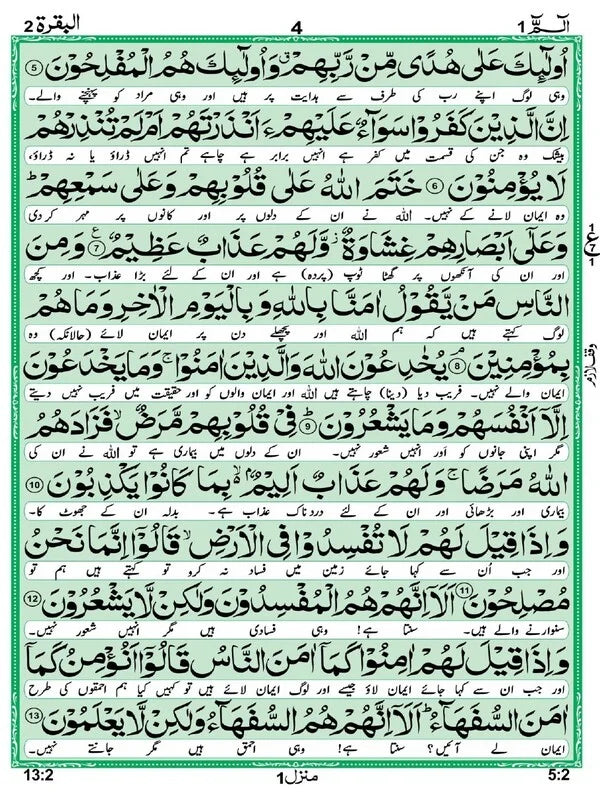 الٓمّٓ 1
4
البقرة 2
اُولٰٓئِكَ عَلٰی هُدًی مِّنْ رَّبِّهِمْ ۗ وَاُولٰٓئِكَ هُمُ الْمُفْلِحُوْنَ ۝5
وہی لوگ اپنے رب کی طرف سے ہدایت پر ہیں اور وہی مراد کو پہنچنے والے۔
اِنَّ الَّذِیْنَ كَفَرُوْا سَوَآءٌ عَلَیْهِمْ ءَاَنْذَرْتَهُمْ اَمْ لَمْ تُنْذِرْهُمْ
بیشک وہ جن کی قسمت میں کفر ہے انہیں برابر ہے چاہے تم انہیں ڈراؤ یا نہ ڈراؤ،
لَا یُؤْمِنُوْنَ ۝6 خَتَمَ اللّٰهُ عَلٰی قُلُوْبِهِمْ وَعَلٰی سَمْعِهِمْ ؕ
وہ ایمان لانے کے نہیں۔ اللہ نے ان کے دلوں پر اور کانوں پر مہر کردی
وَعَلٰۤی اَبْصَارِهِمْ غِشَاوَةٌ ؗ وَّلَهُمْ عَذَابٌ عَظِیْمٌ ۝7 ع وَمِنَ
اور ان کی آنکھوں پر گھٹا ٹوپ (پردہ) ہے اور ان کے لئے بڑا عذاب۔ اور کچھ
النَّاسِ مَنْ یَّقُوْلُ اٰمَنَّا بِاللّٰهِ وَبِالْیَوْمِ الْاٰخِرِ وَمَا هُمْ
لوگ کہتے ہیں کہ ہم اللہ اور پچھلے دن پر ایمان لائے (حالانکہ) وہ
وقف لازم
بِمُؤْمِنِیْنَ ۝8 یُخٰدِعُوْنَ اللّٰهَ وَالَّذِیْنَ اٰمَنُوْا ۚ وَمَا یَخْدَعُوْنَ
ایمان والے نہیں۔ فریب دیا (دینا) چاہتے ہیں اللہ اور ایمان والوں کو اور حقیقت میں فریب نہیں دیتے
اِلَّاۤ اَنْفُسَهُمْ وَمَا یَشْعُرُوْنَ ۝9 فِیْ قُلُوْبِهِمْ مَّرَضٌ ۙ فَزَادَهُمُ
مگر اپنی جانوں کو اور انہیں شعور نہیں۔ ان کے دلوں میں بیماری ہے تو اللہ نے ان کی
اللّٰهُ مَرَضًا ۚ وَلَهُمْ عَذَابٌ اَلِیْمٌۢ ۙ بِمَا كَانُوْا یَكْذِبُوْنَ ۝10
بیماری اور بڑھائی اور ان کے لئے دردناک عذاب ہے۔ بدلہ ان کے جھوٹ کا۔
وَاِذَا قِیْلَ لَهُمْ لَا تُفْسِدُوْا فِی الْاَرْضِ ۙ قَالُوْۤا اِنَّمَا نَحْنُ
اور جب اُن سے کہا جائے زمین میں فساد نہ کرو تو کہتے ہیں ہم تو
مُصْلِحُوْنَ ۝11 اَلَاۤ اِنَّهُمْ هُمُ الْمُفْسِدُوْنَ وَلٰكِنْ لَّا یَشْعُرُوْنَ ۝12
سنوارنے والے ہیں۔ سنتا ہے! وہی فسادی ہیں مگر انہیں شعور نہیں۔
وَاِذَا قِیْلَ لَهُمْ اٰمِنُوْا كَمَاۤ اٰمَنَ النَّاسُ قَالُوْۤا اَنُؤْمِنُ كَمَاۤ
اور جب ان سے کہا جائے ایمان لاؤ جیسے اور لوگ ایمان لائے ہیں تو کہیں کیا ہم احمقوں کی طرح
اٰمَنَ السُّفَهَآءُ ؕ اَلَاۤ اِنَّهُمْ هُمُ السُّفَهَآءُ وَلٰكِنْ لَّا یَعْلَمُوْنَ ۝13
ایمان لے آئیں؟ سنتا ہے! وہی احمق ہیں مگر جانتے نہیں۔
5:2
منزل 1
13:2